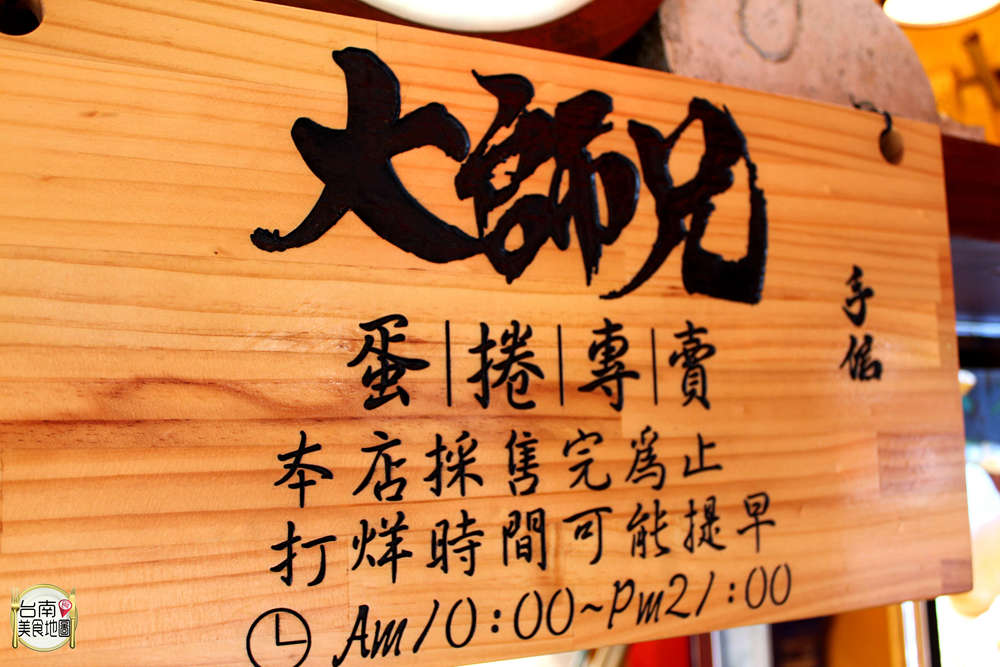 大師兄
手作
蛋|捲|專|賣
本店採售完為止
打烊時間可能提早
Am10:00~Pm21:00
台南
美食地圖